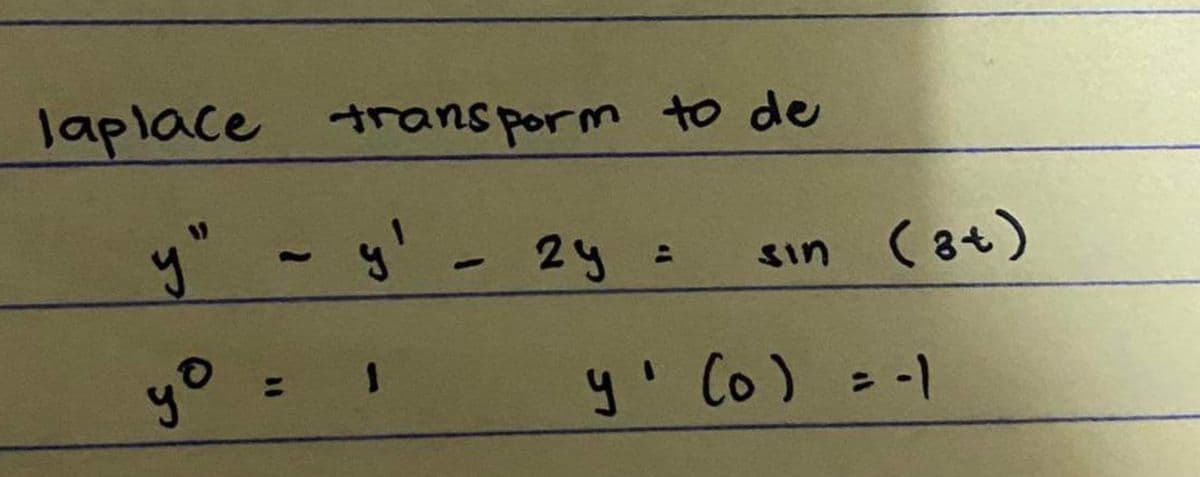 laplace transporm to de
y" - y' - 2y = sin (3t)
y⁰ = 1 y' (0) = -1